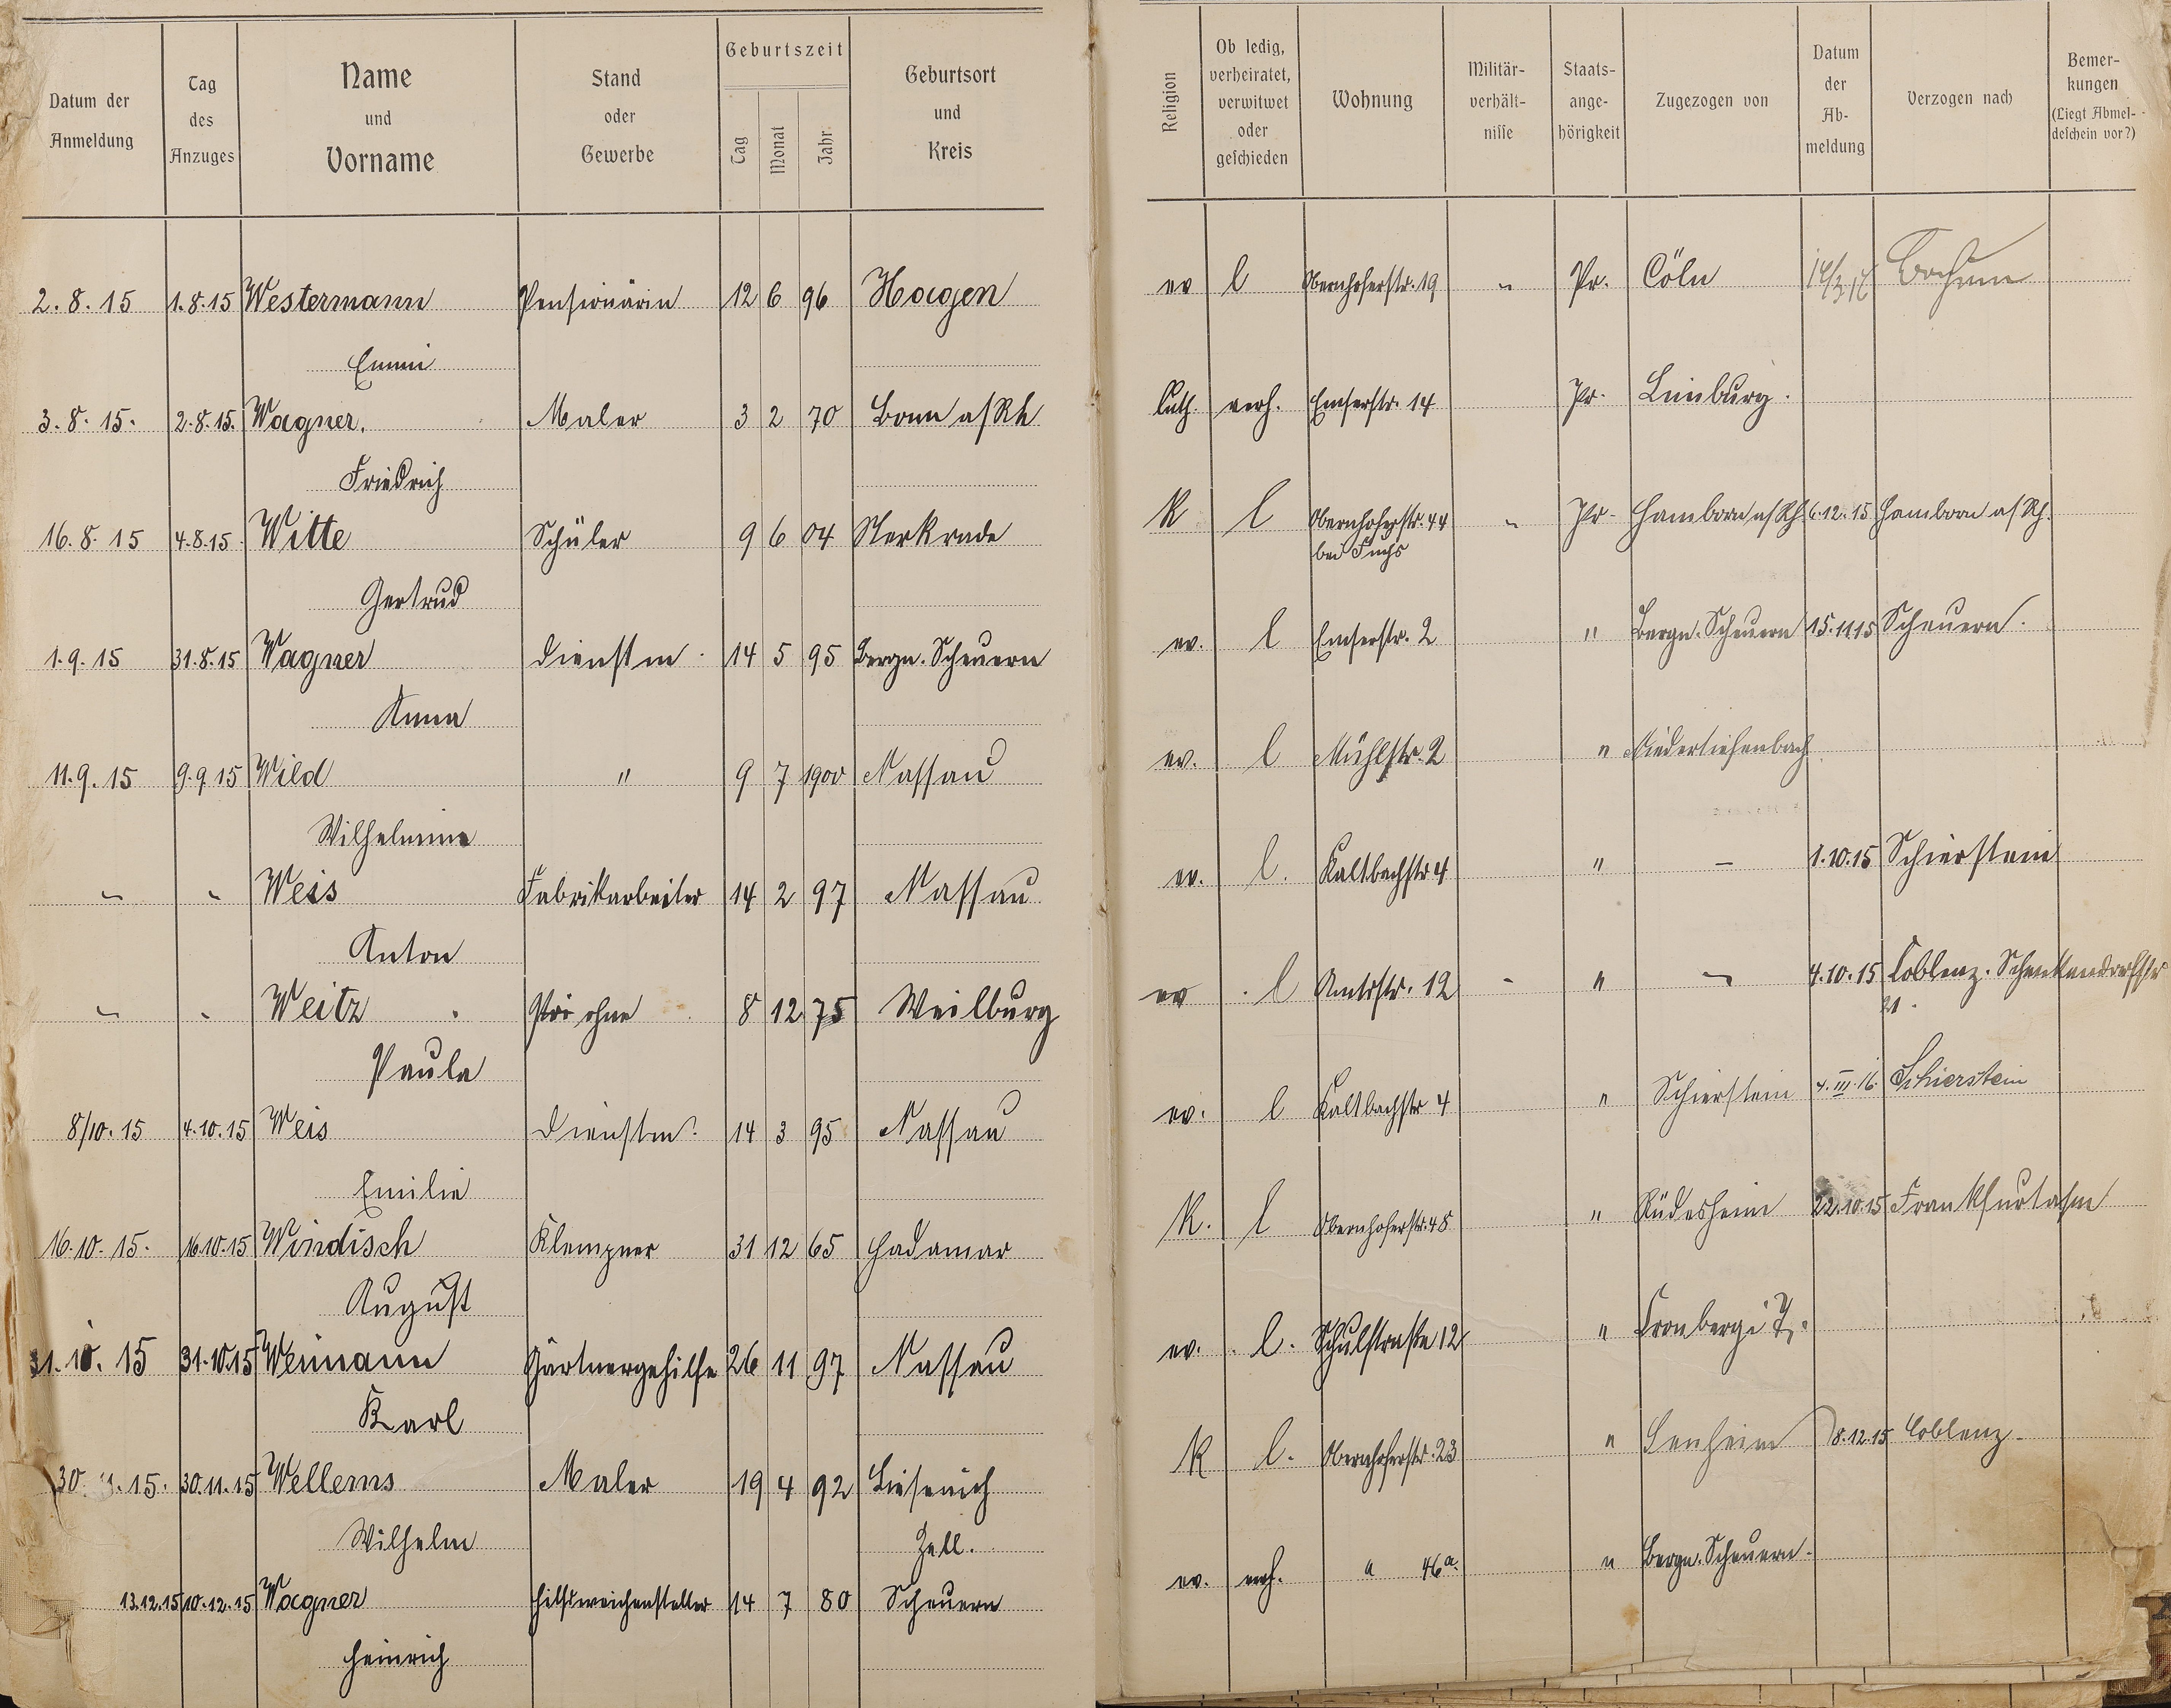 Datum der Anmeldung | Tag des Anzuges | Name und Vorname | Stand oder Gewerbe | Geburtszeit Tag Monat Jahr | Geburtsort und Kreis | Religion | Ob ledig, verheiratet, verwitwet oder geschieden | Wohnung | Militär-verhält-nisse | Staats-ange-hörigkeit | Zugezogen von | Datum der Ab-meldung | Verzogen nach | Bemer-kungen (Liegt Abmel-deschein vor?)
2. 8. 15 1. 8. 15 Westermann Pensionärin 12 6 96 Hagen ev l Obernhoferstr. 19 " Pr. Cöln Bochum
Emmi
3. 8. 15. 2. 8. 15. Wagner. Maler 3 2 70 Bonn a/Rh luth. verh. Emserstr. 14 Pr. Limburg.
Friedrich
16. 8. 15 4. 8. 15 Witte Schüler 9 6 04 Sterkrade K l Obernhoferstr. 44 " Pr. Hamborn a/Rh. 6. 12. 15 Hamborn a/Rh.
bei Fuchs
Gertrud
1. 9. 15 31. 8. 15 Wagner Dienstm. 14 5 95 Bergn. Scheuern ev. l Emserstr. 2 " Bergn. Scheuern 15. 11 15 Scheuern.
Anna
11. 9. 15 9. 9. 15 Wild " 9 7 1900 Nassau ev. l Mühlstr. 2 " Niedertiefenbach
Wilhelmine
" " Weis Fabrikarbeiter 14 2 97 Nassau ev. l. Kaltbachstr 4 " – 1. 10. 15 Schierstein
Anton
" " Weitz ohne 8 12 75 Weilburg ev l Amtsstr. 12 - " " 4. 10. 15 Coblenz.
21.
Paula
8/10. 15 4. 10. 15 Weis Dienstm. 14 3 95 Nassau ev. l Kaltbachstr 4 " Schierstein 4. III. 16. Schierstein
Emilie
16. 10. 15. 16. 10. 15 Windisch Klempner 31 12 65 Hadamar K. l Obernhoferstr. 48 " Rüdesheim 22. 10. 15 Frankfurt a/m
August
31. 10. 15 31. 10 15 Weimann Gärtnergehilfe 26 11 97 Nassau ev. l. Schulstraße 12 " Cronberg i T.
Karl
30. 11. 15. 30. 11. 15 Wellems Maler 19 4 92 Liesenich K l. Obernhoferstr. 23 " Senheim 8. 12. 15 Coblenz
Wilhelm Zell.
13. 12. 15 10. 12. 15 Wagner Hilfsweichensteller 14 7 80 Scheuern ev. verh. " 46a. " Bergn. Scheuern.
Heinrich